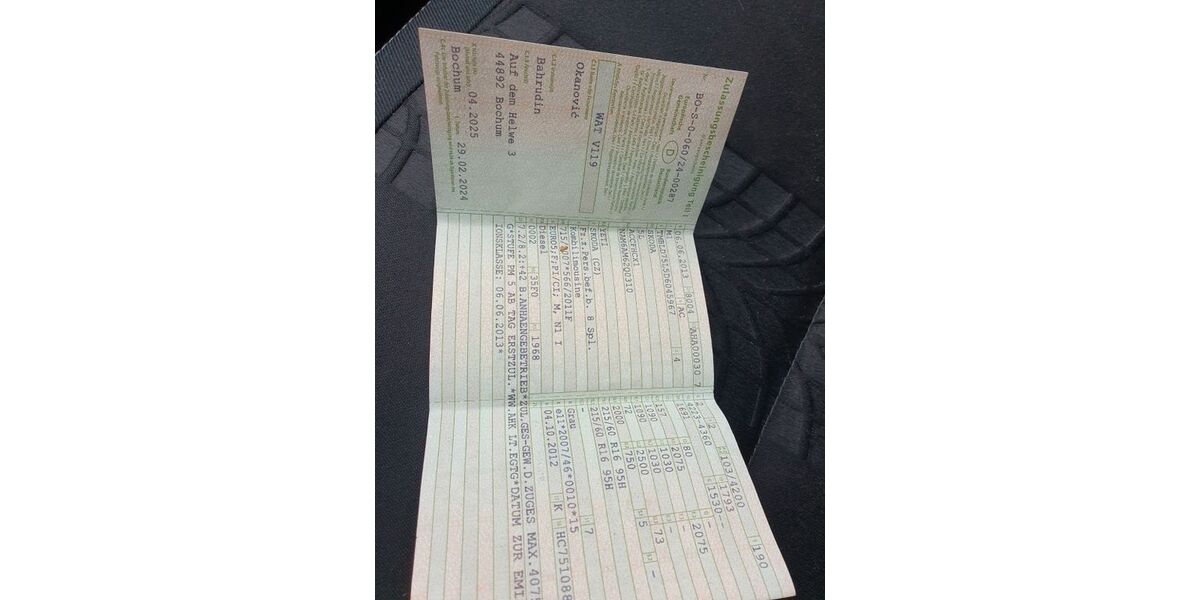 Zulassungsbescheinigung Teil I
Nr. BO-S-0-060/24-00287
Europäische
Gemeinschaft
D
Bundesrepublik
Deutschland
WAT V119
Okanović
Bahrudin
Auf dem Helwe 3
44892 Bochum
04.2025
Bochum
29.02.2024
06.06.2013 8004
M1 AC 4
SKODA
5L
ACCFHCX1
NAM6AM62Q0310
YETI
SKODA (CZ)
Fz.z.Pers.bef.b. 8 Spl.
Kombilimousine
EURO5;F;PI/CI; M, N1 I
Diesel
0002 35F0 1968
7.2/8.2:+42 B.ANHAENGEBETRIEB*ZUL.GES-GEW.D.ZUGES MAX.407
G*STUFE PM 5 AB TAG ERSTZUL.*WW.AHK LT.EGTG*DATUM ZUR EMI
IONSKLASSE: 06.06.2013*
2 103/4200 190
1793
1530-- -
80 - 2075
2075 -
157 1030 - 73
1090 1030 -
1090 2500 5
72 750
2000
215/60 R16 95H
215/60 R16 95H
- 7
Grau
e11*2007/46*0010*15
04.10.2012 K HC751088